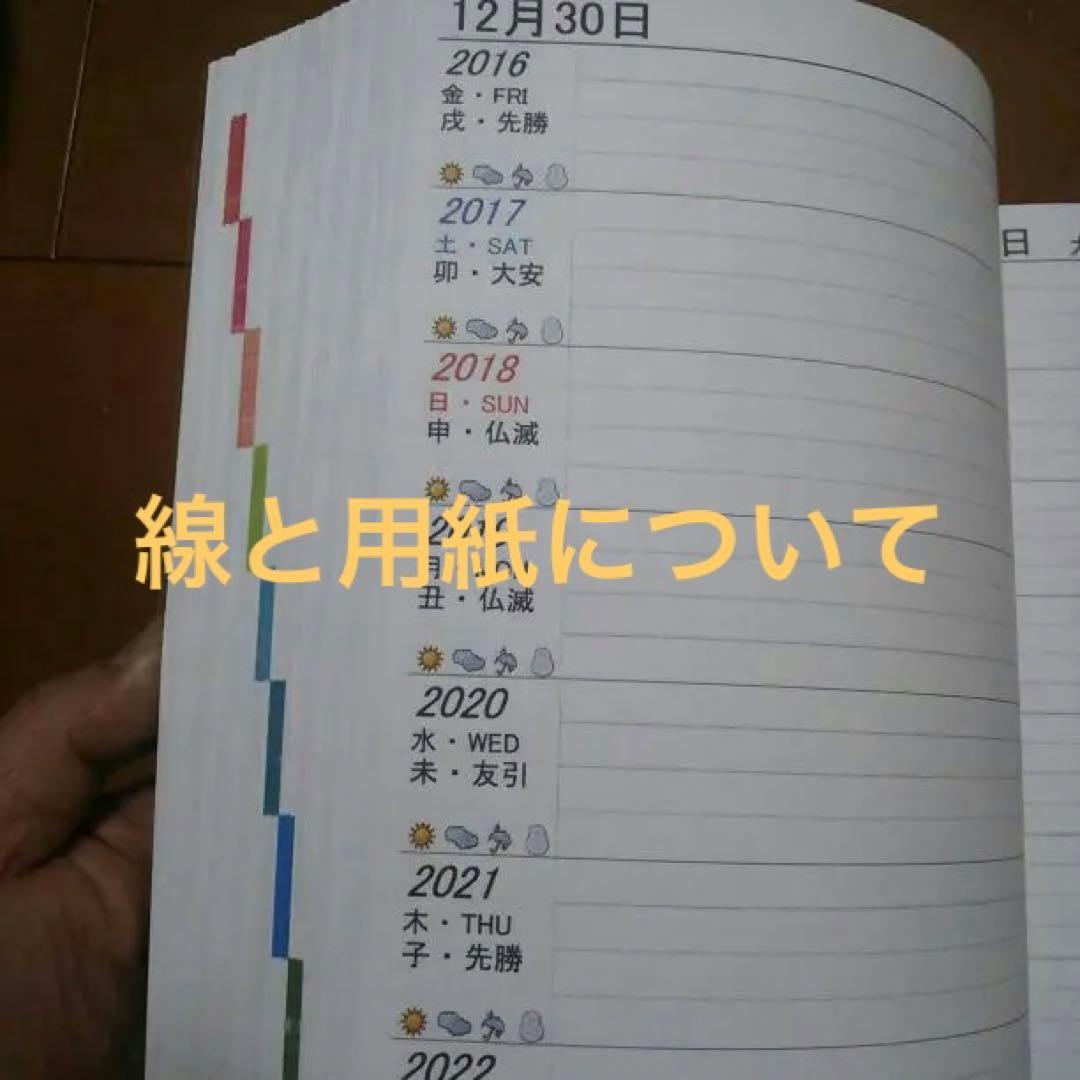 12月30日
2016
金・FRI
戌・先勝
2017
土・SAT
卯・大安
2018
日・SUN
申・仏滅
線と用紙について
丑・仏滅
2020
水・WED
未・友引
2021
木・THU
子・先勝
2022
日